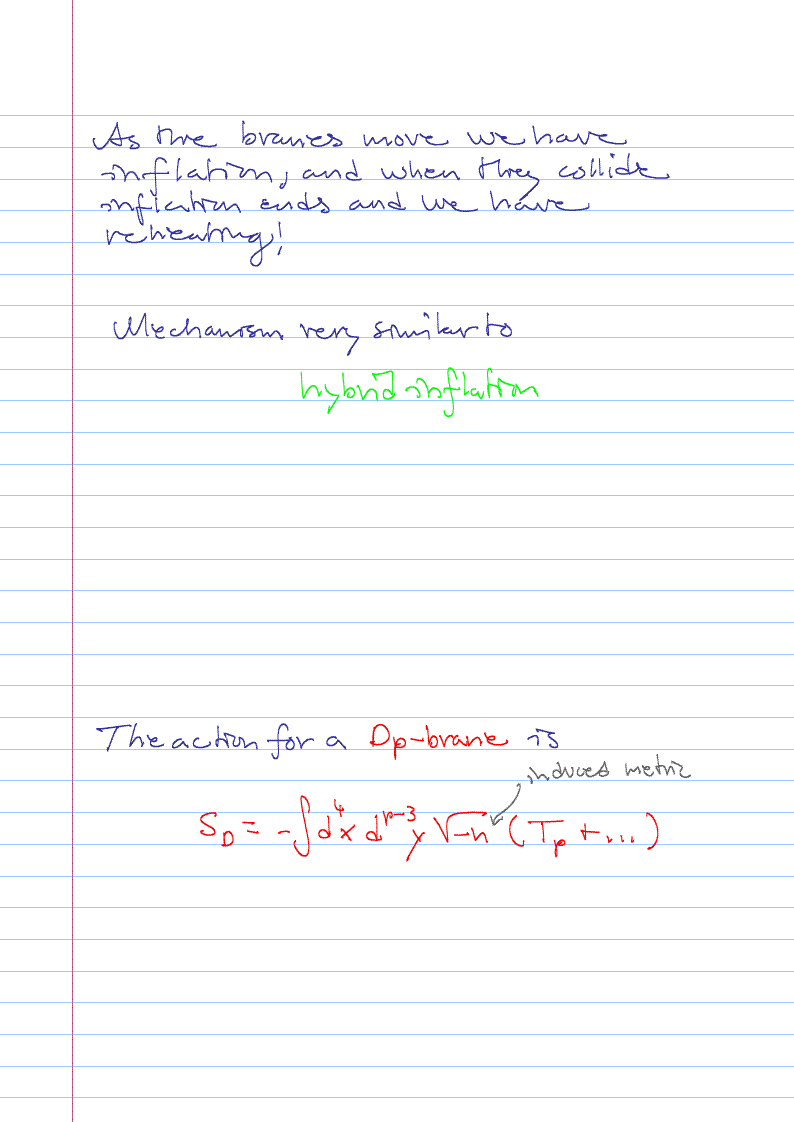 As the branes move we have
inflation, and when they collide
inflation ends and we have
reheating!
Mechanism very similar to
hybrid inflation
The action for a Dp-brane is
induced metric
S_D = -∫d⁴x d^{p-3}y √-h (T_p + ...)